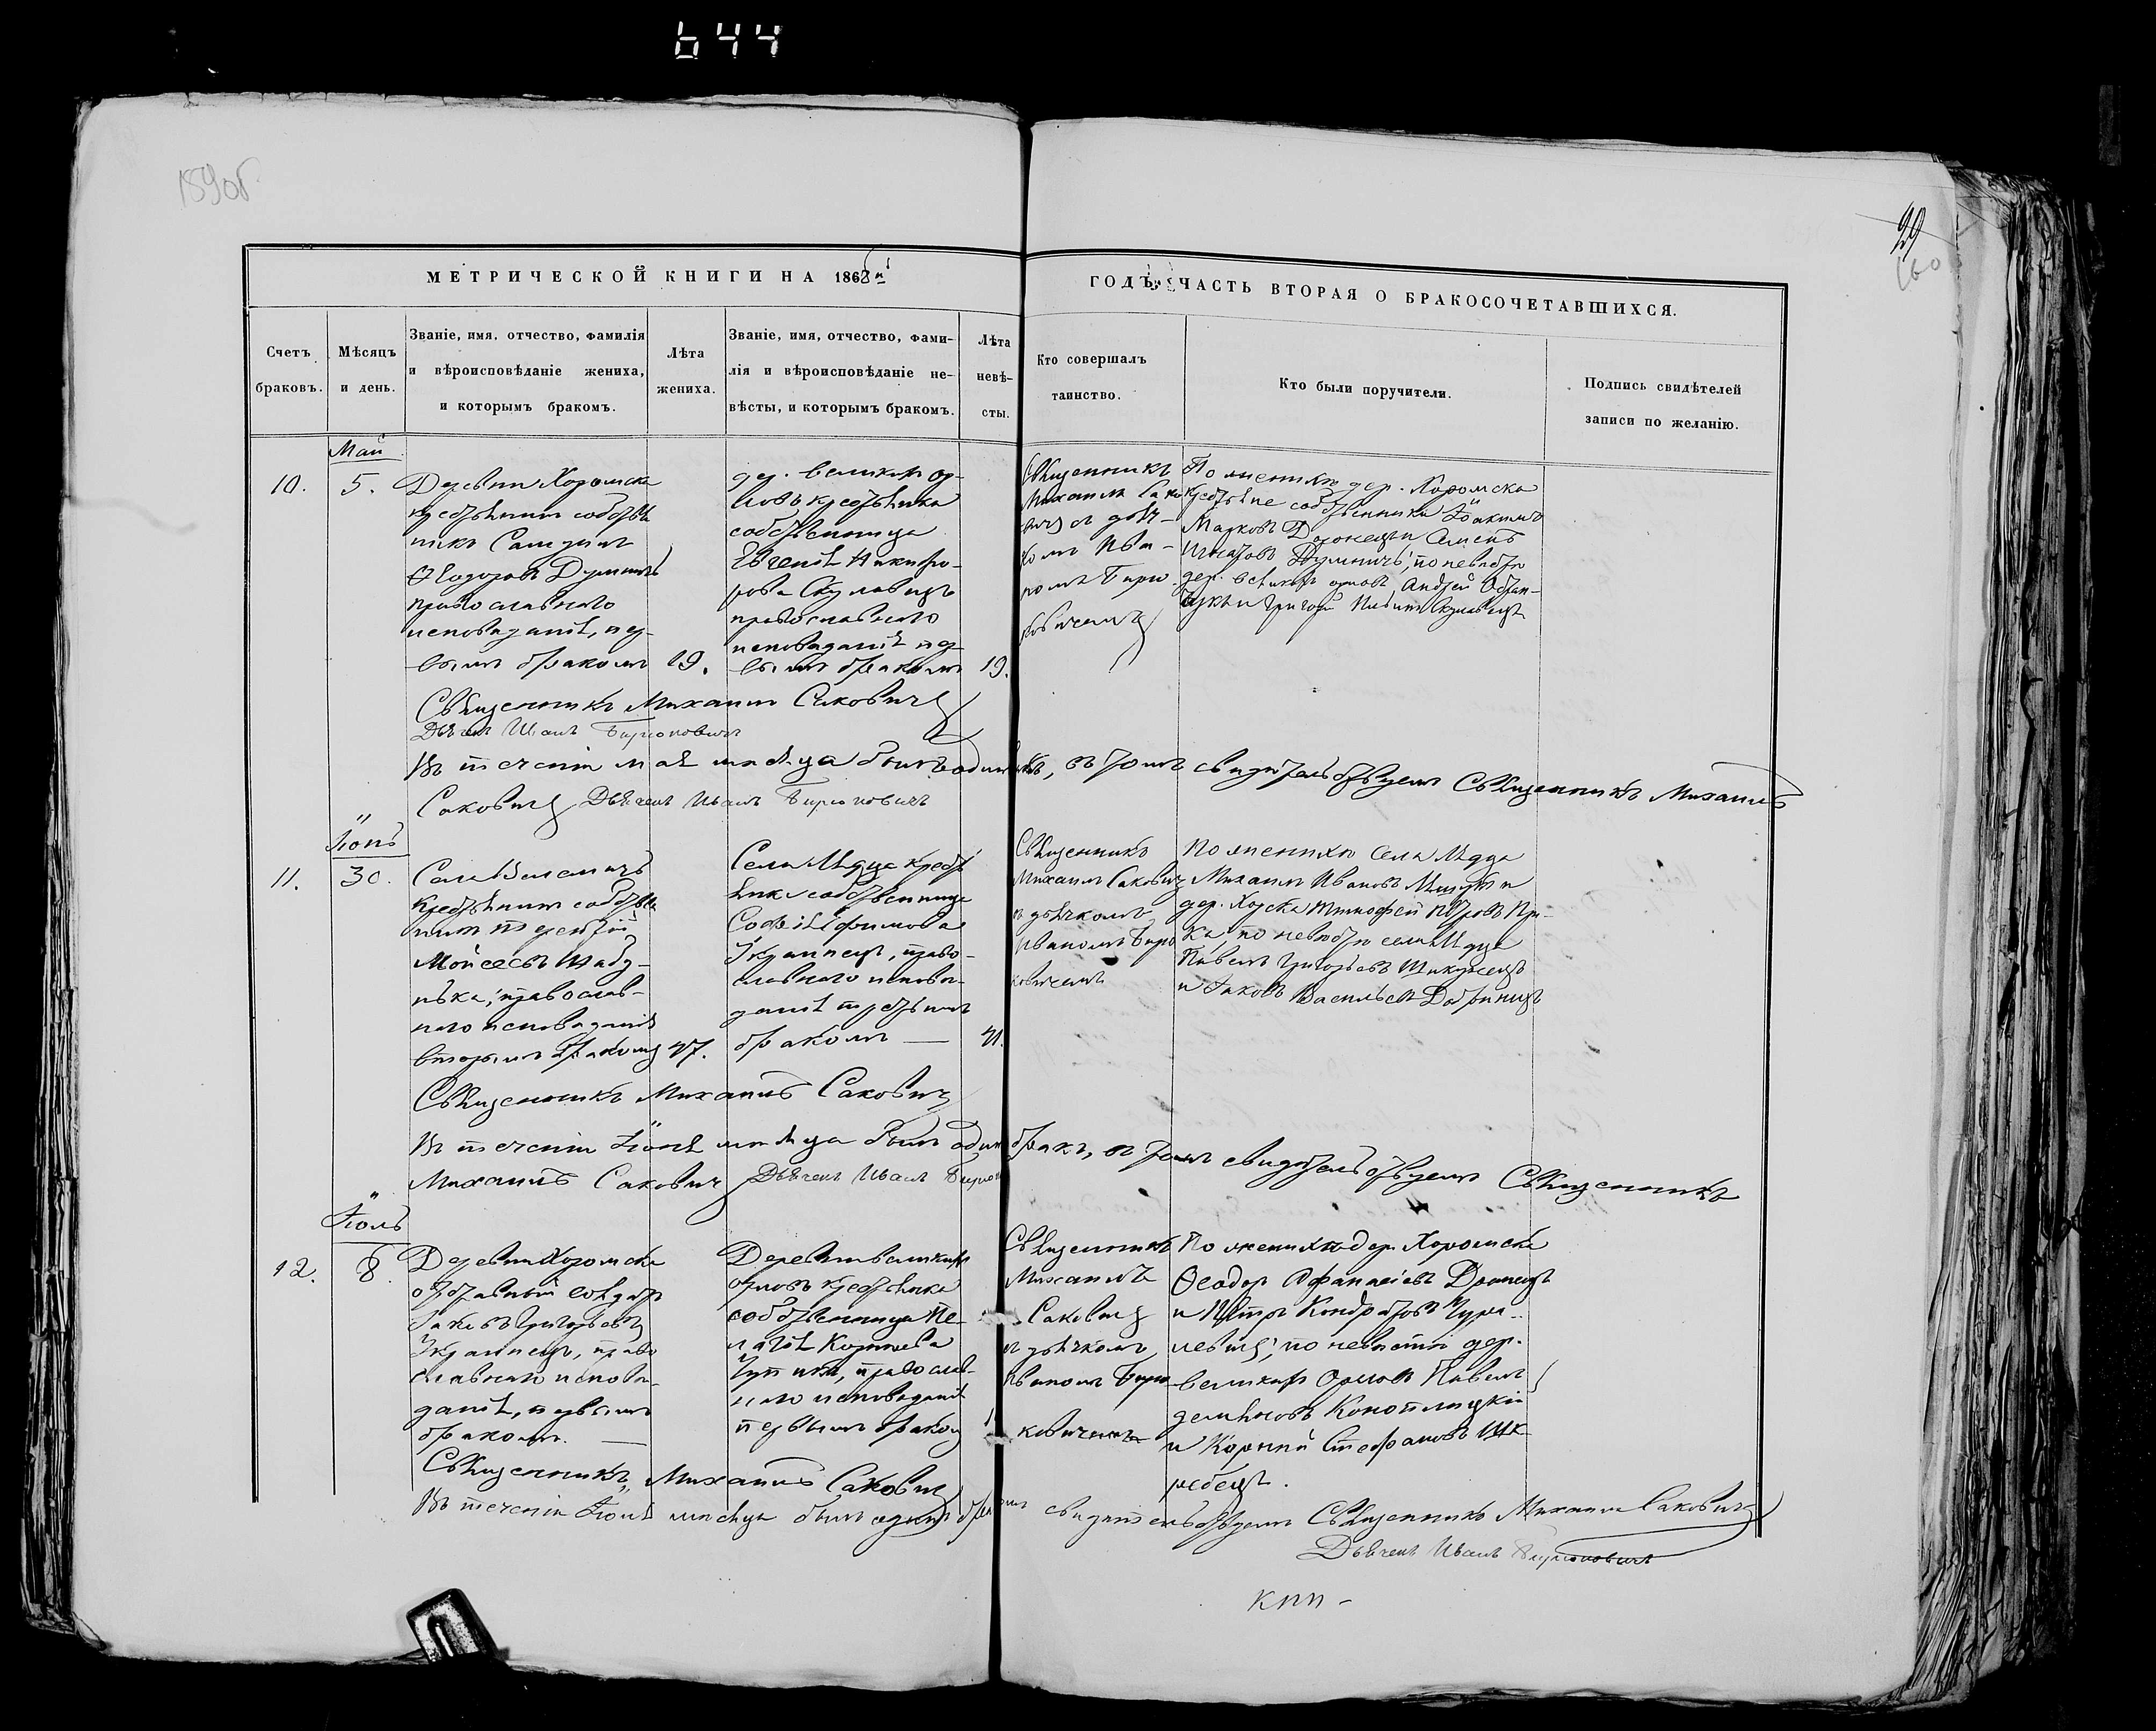 644
159об.
29
160
МЕТРИЧЕСКОЙ КНИГИ НА 1868й
ГОДЪ, ЧАСТЬ ВТОРАЯ О БРАКОСОЧЕТАВШИХСЯ.
Счетъ браковъ.
Мѣсяцъ и день.
Званіе, имя, отчество, фамилія
и вѣроисповѣданіе жениха,
и которымъ бракомъ.
Лѣта
жениха.
Званіе, имя, отчество, фами-
лія и вѣроисповѣданіе не-
вѣсты, и которымъ бракомъ.
Лѣта
невѣ-
сты.
Кто совершалъ
таинство.
Кто были поручители.
Подпись свидѣтелей
записи по желанію.
Май
10.
5.
Деревни Хоромска
крестьянинъ собствен
никъ
Ѳеодоровъ
православнаго
исповеданія, пер-
вымъ бракомъ
19.
дер. Великихъ Ор-
ловъ крестьянка
собственница
Евгенія Никифо-
рова
православнаго
исповеданія пер-
вымъ бракомъ
19.
Священникъ
Михаилъ Сако
вичъ съ дьяч-
комъ Ива-
номъ Бирю
ковичемъ
По женихѣ дер. Хоромска
крестьяне собственники Іоакимъ
Марковъ и Семенъ
Игнатовъ по невѣстѣ
дер. Великихъ орловъ Андрей
и Григорій
Священникъ Михаилъ Саковичъ
Дьячекъ Иванъ Бирюковичъ
Въ теченіи мая мѣсяца былъ одинъ бракъ, въ томъ свидѣтельствуемъ Священникъ Михаилъ
Саковичъ Дьячекъ Иванъ Бирюковичъ
Іюнь
11.
30.
Села
крестьянинъ собствен
никъ Терентій
Мойсеевъ
православ-
наго исповеданія
вторымъ бракомъ
47.
Села крест
янка собственница
Софія Ефимова
Украинецъ, право-
славнаго испове-
данія третьимъ
бракомъ —
41.
Священникъ
Михаилъ Саковичъ
съ дьячкомъ
Иваномъ Бирю
ковичемъ
По женихѣ села
Михаилъ Ивановъ и
дер. Хорска Тимофей Петровъ
по невѣстѣ села
Павелъ Григорьевъ
и Яковъ Васильевъ
Священникъ Михаилъ Саковичъ
Въ теченіи Іюня мѣсяца былъ одинъ бракъ, въ томъ свидѣтельствуемъ Священникъ
Михаилъ Саковичъ Дьячекъ Иванъ Бирюк
Іюль
12.
8.
Деревни Хоромска
отставный солдатъ
Яковъ Григорьевъ
Украинецъ, право
славнаго испове-
данія, первымъ
бракомъ. —
Деревни великихъ
орловъ крестьянка
собственница Пе-
лагія Корнѣева
православ-
наго исповеданія
первымъ бракомъ
Священникъ
Михаилъ
Саковичъ
съ дьячкомъ
Иваномъ Бирю
ковичемъ
По женихѣ дер. Хоромска
Ѳеодоръ Афанасіевъ Донецъ
и Петръ Кондратовъ
по невѣстѣ дер.
великихъ Орловъ Павелъ
Демьяновъ Коноплицкій
и Корній Стефановъ
Священникъ Михаилъ Саковичъ
Въ теченіи Іюля мѣсяца былъ одинъ бракъ свидѣтельствуемъ Священникъ Михаилъ Саковичъ
Дьячекъ Иванъ Бирюковичъ